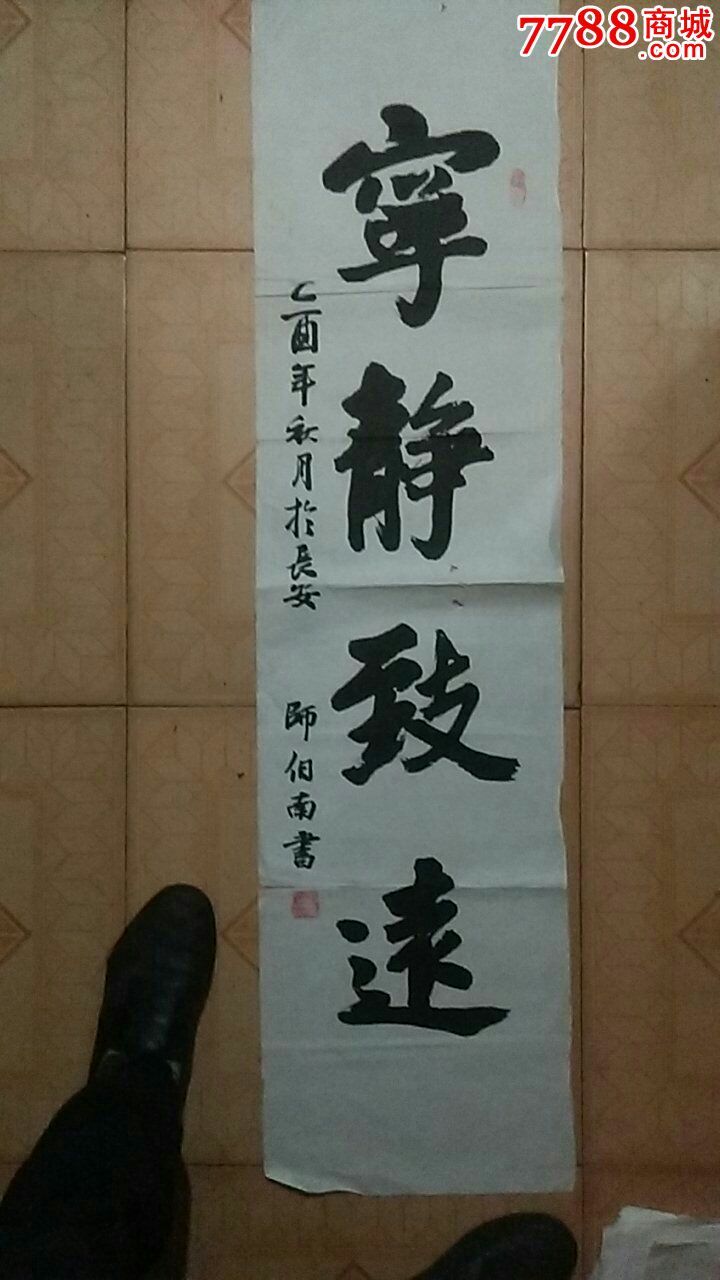 7788商城
.com
寧靜致遠
乙酉年秋月於長安
師伯南書